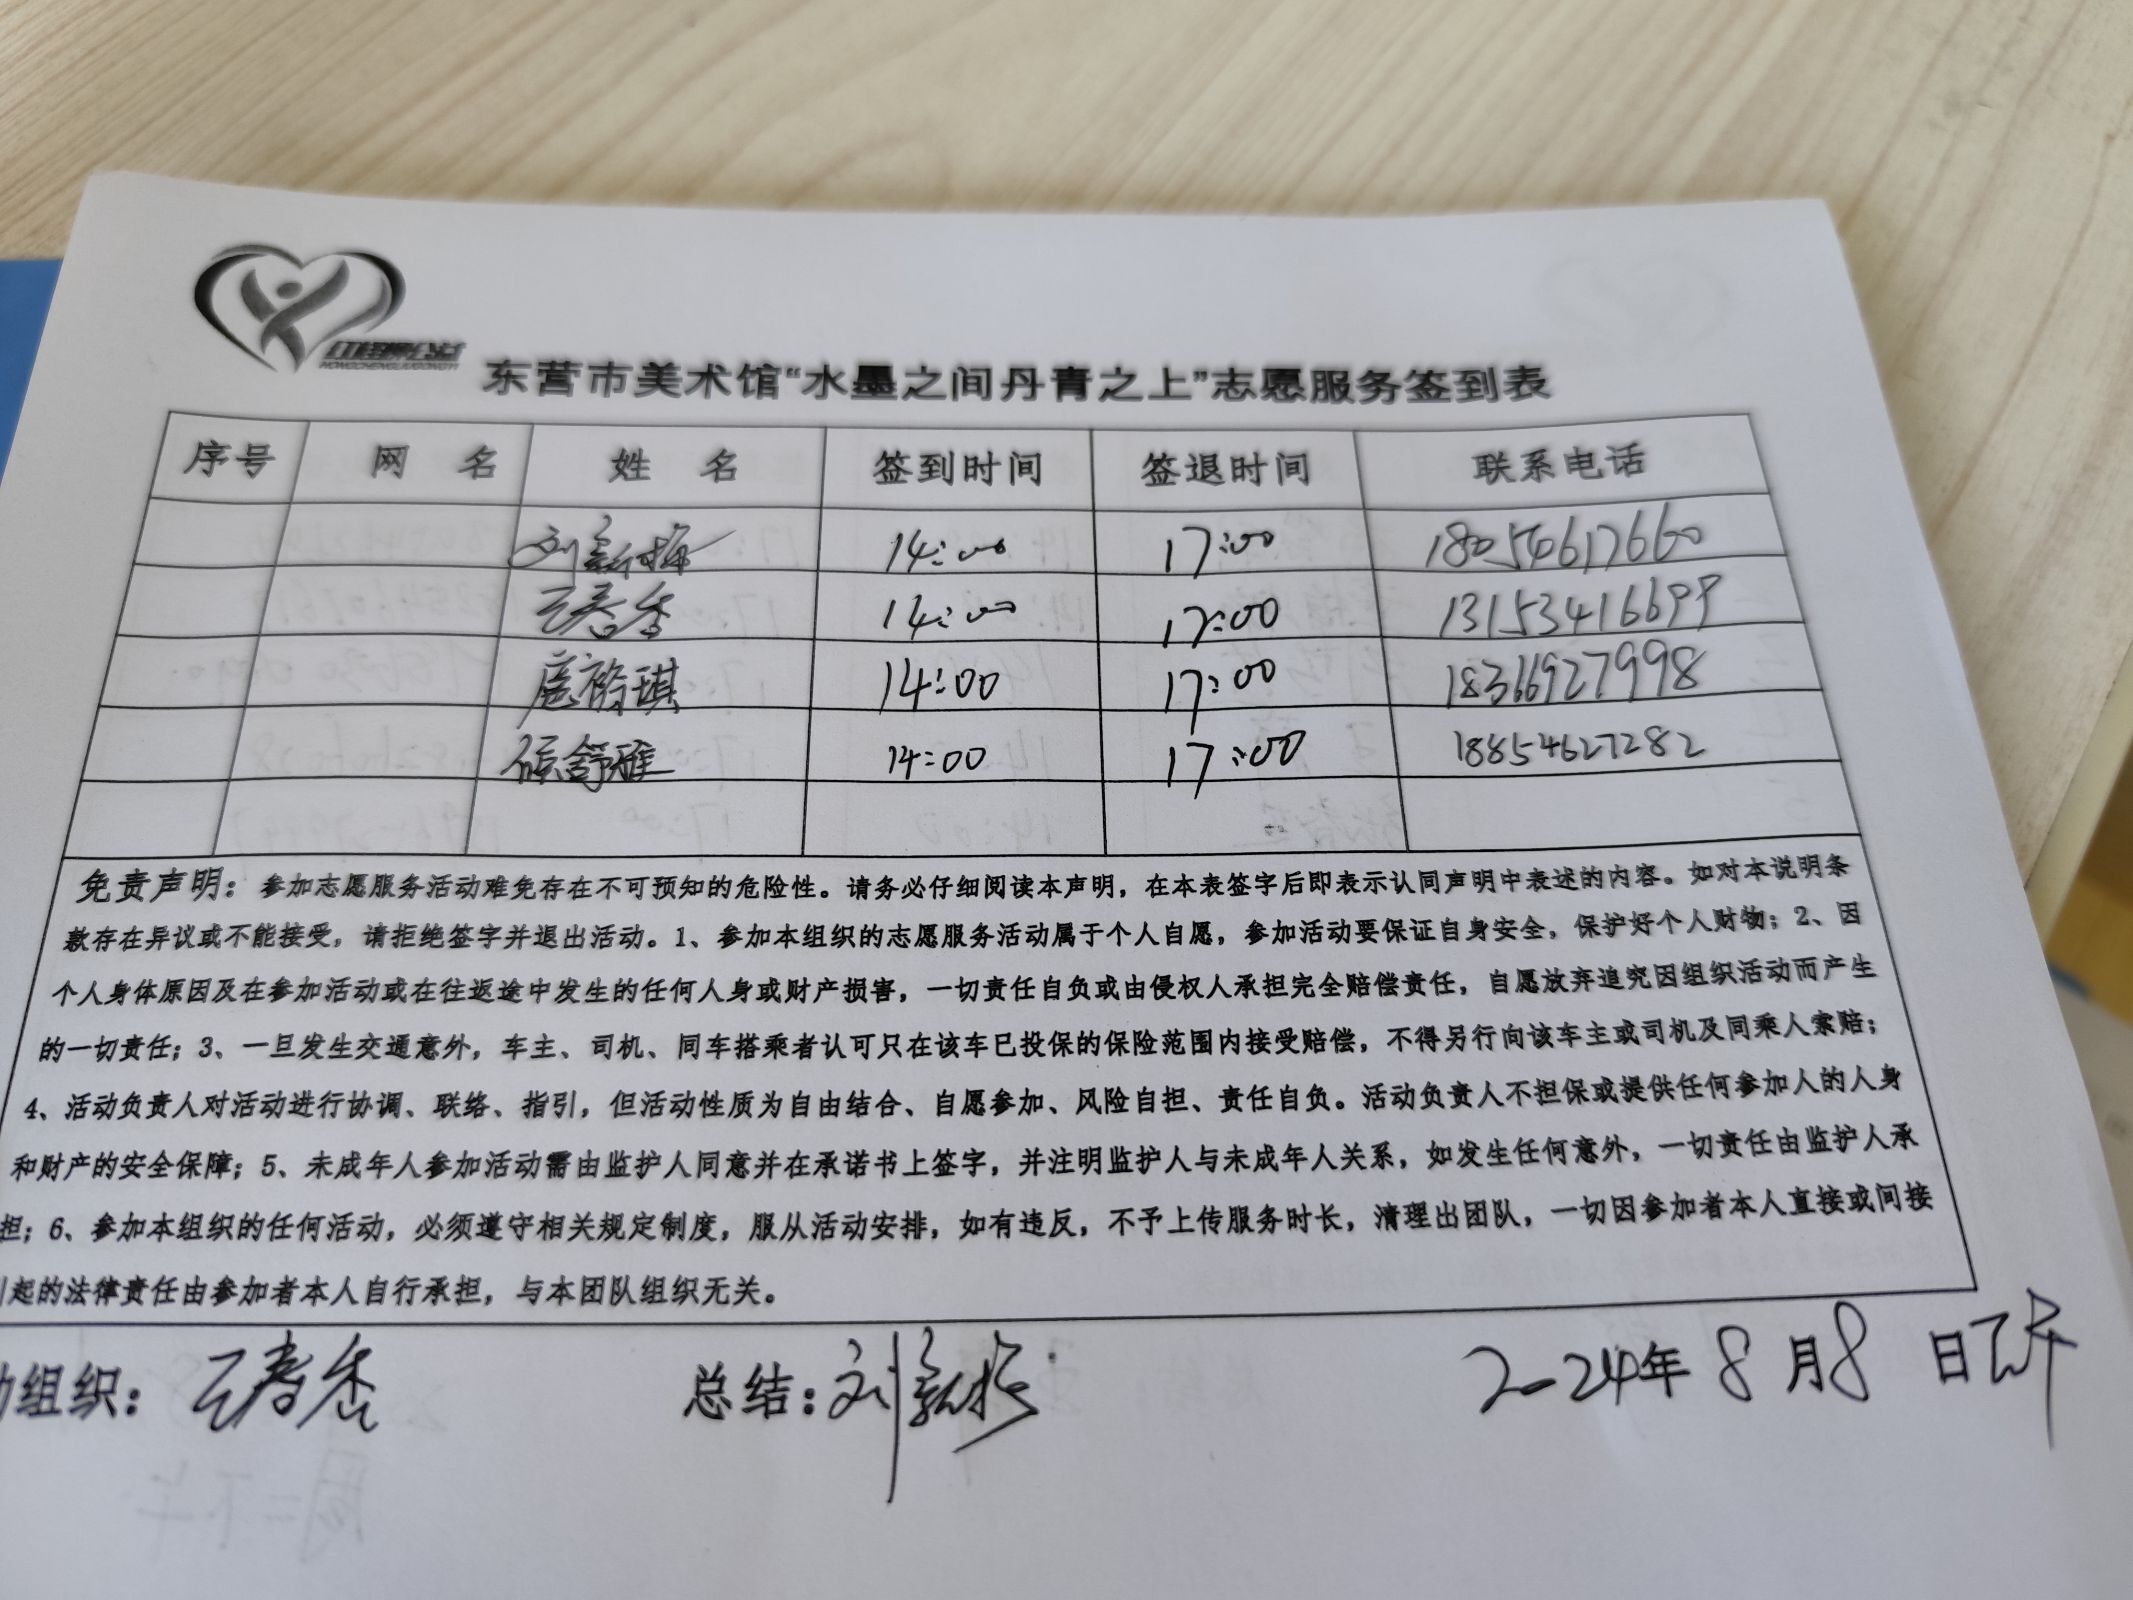 红柽柳公益
HONGCHENGLIUGONGYI
东营市美术馆“水墨之间丹青之上”志愿服务签到表
序号 网 名 姓 名 签到时间 签退时间 联系电话
刘新梅 14:00 17:00 18054617660
王春香 14:00 17:00 13153416699
扈裕琪 14:00 17:00 18366927998
侯舒雅 14:00 17:00 18854627282
免责声明：参加志愿服务活动难免存在不可预知的危险性。请务必仔细阅读本声明，在本表签字后即表示认同声明中表述的内容。如对本说明条
款存在异议或不能接受，请拒绝签字并退出活动。1、参加本组织的志愿服务活动属于个人自愿，参加活动要保证自身安全，保护好个人财物；2、因
个人身体原因及在参加活动或在往返途中发生的任何人身或财产损害，一切责任自负或由侵权人承担完全赔偿责任，自愿放弃追究因组织活动而产生
的一切责任；3、一旦发生交通意外，车主、司机、同车搭乘者认可只在该车已投保的保险范围内接受赔偿，不得另行向该车主或司机及同乘人索赔；
4、活动负责人对活动进行协调、联络、指引，但活动性质为自由结合、自愿参加、风险自担、责任自负。活动负责人不担保或提供任何参加人的人身
和财产的安全保障；5、未成年人参加活动需由监护人同意并在承诺书上签字，并注明监护人与未成年人关系，如发生任何意外，一切责任由监护人承
担；6、参加本组织的任何活动，必须遵守相关规定制度，服从活动安排，如有违反，不予上传服务时长，清理出团队，一切因参加者本人直接或间接
引起的法律责任由参加者本人自行承担，与本团队组织无关。
动组织：王春香 总结：刘新梅 2024年8月8日下午